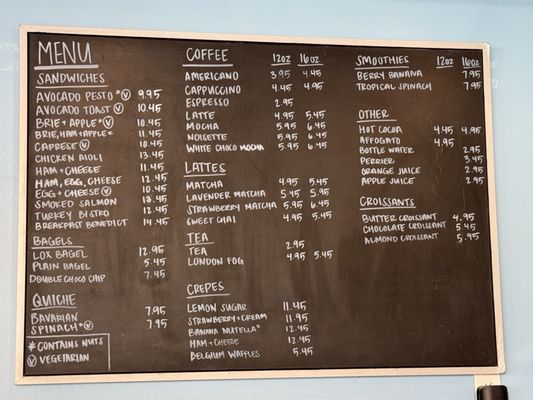 MENU
SANDWICHES
AVOCADO PESTO *Ⓥ 9.95
AVOCADO TOAST Ⓥ 10.45
BRIE + APPLE *Ⓥ 10.45
BRIE, HAM + APPLE * 11.45
CAPRESE Ⓥ 10.45
CHICKEN AIOLI 13.45
HAM + CHEESE 11.45
HAM, EGG, CHEESE 12.45
EGG + CHEESE Ⓥ 10.45
SMOKED SALMON 13.45
TURKEY BISTRO 12.45
BREAKFAST BENEDICT 14.45
BAGELS
LOX BAGEL 12.95
PLAIN BAGEL 5.45
DOUBLE CHOCO CHIP 7.45
QUICHE
BAVARIAN 7.95
SPINACH *Ⓥ 7.95
* CONTAINS NUTS
Ⓥ VEGETARIAN
COFFEE 12oz 16oz
AMERICANO 3.95 4.45
CAPPUCCINO 4.45 4.95
ESPRESSO 2.95
LATTE 4.95 5.45
MOCHA 5.95 6.45
NOISETTE 5.95 6.45
WHITE CHOCO MOCHA 5.95 6.45
LATTES
MATCHA 4.95 5.45
LAVENDER MATCHA 5.45 5.95
STRAWBERRY MATCHA 5.95 6.45
SWEET CHAI 4.95 5.45
TEA
TEA 2.95
LONDON FOG 4.95 5.45
CREPES
LEMON SUGAR 11.45
STRAWBERRY + CREAM 11.95
BANANA NUTELLA * 12.45
HAM + CHEESE 12.45
BELGIUM WAFFLES 5.45
SMOOTHIES 12oz 16oz
BERRY BANANA 7.95
TROPICAL SPINACH 7.95
OTHER
HOT COCOA 4.45 4.95
AFFOGATO 4.95
BOTTLE WATER 2.95
PERRIER 3.45
ORANGE JUICE 2.95
APPLE JUICE 2.95
CROISSANTS
BUTTER CROISSANT 4.95
CHOCOLATE CROISSANT 5.45
ALMOND CROISSANT 5.95